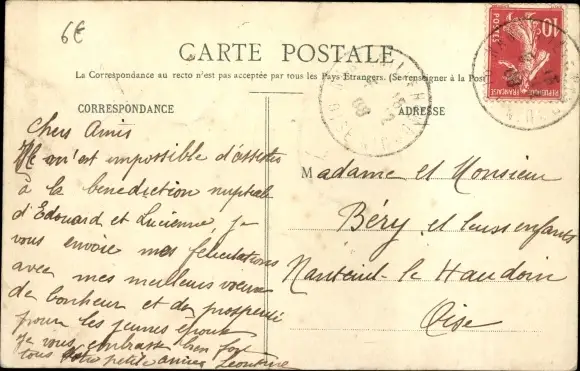 6€
CARTE POSTALE
La Correspondance au recto n'est pas acceptée par tous les Pays Étrangers. (Se renseigner à la Post
CORRESPONDANCE
ADRESSE
POSTES 10
REPUBLIQUE FRANCAISE
Chers Amis
Il m'est impossible d'assister
à la bénédiction nuptiale
d'Edouard et Lucienne, je
vous envoie mes félicitations
avec mes meilleurs voeux
de bonheur et de prospérité
pour les jeunes époux
je vous embrasse bien fort
tous Votre petite amie Léontine
Madame et Monsieur
Béry et leurs enfants
Nanteuil-le Haudoin
Oise